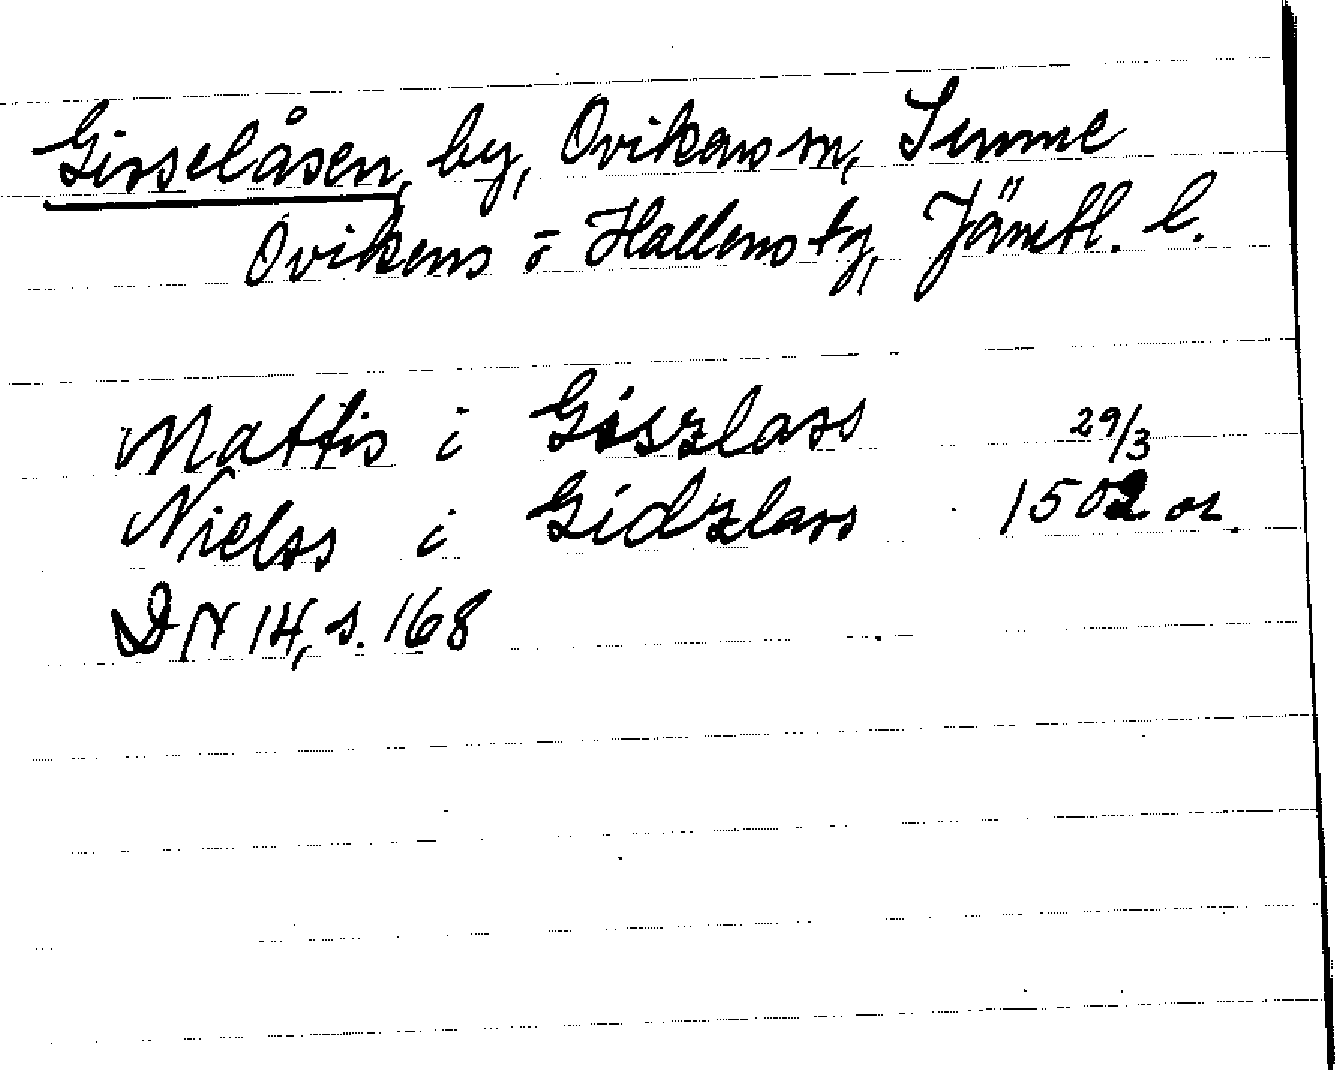 Gisselåsen, by, Ovikens sn, Sunne
Ovikens o Hallens tg, Jämtl. l.
Mattis i Giszlass 29/3
Nielss i Gidzlass 1502 or.
DN 14, s. 168